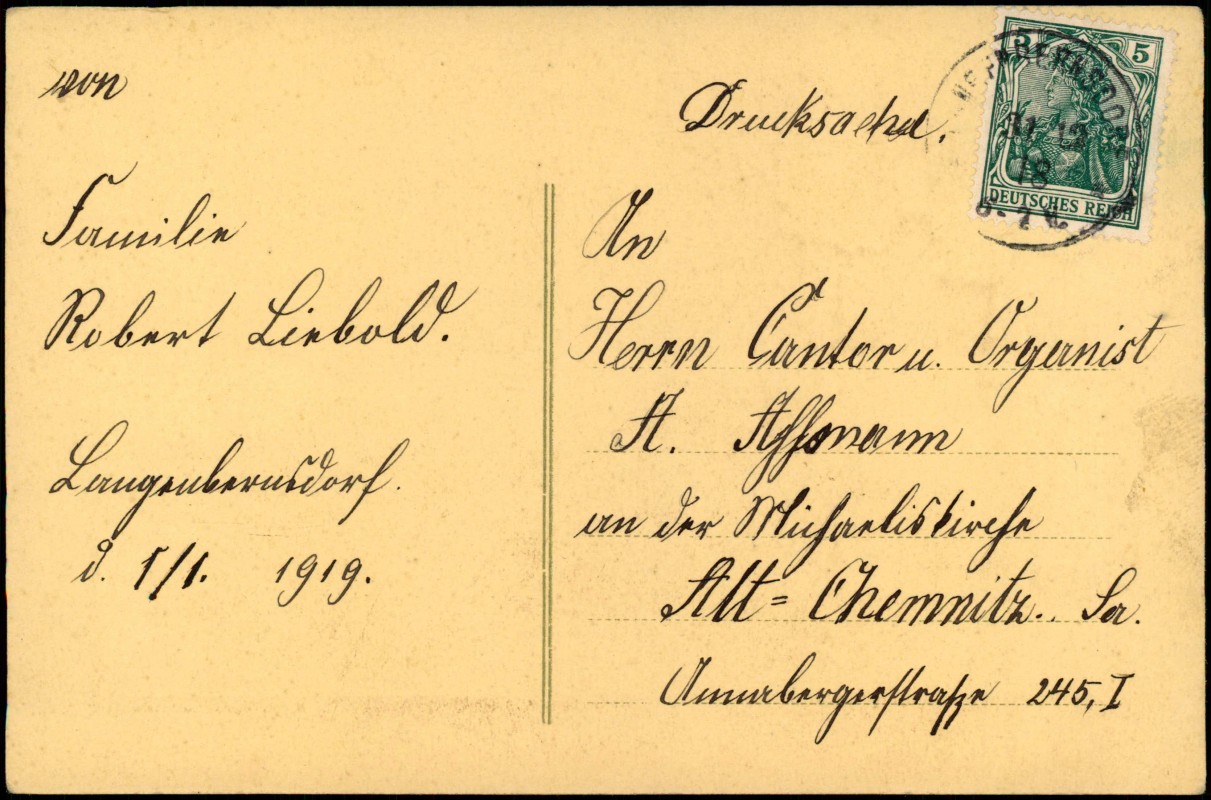 von
Familie
Robert Liebold.
Langenbernsdorf.
d. 1/1. 1919.
Drucksache.
5 5
DEUTSCHES REICH
31 12
18
An
Herrn Cantor u. Organist
A. Assmann
an der Michaeliskirche
Alt= Chemnitz. Sa.
Annabergerstraße 245, I